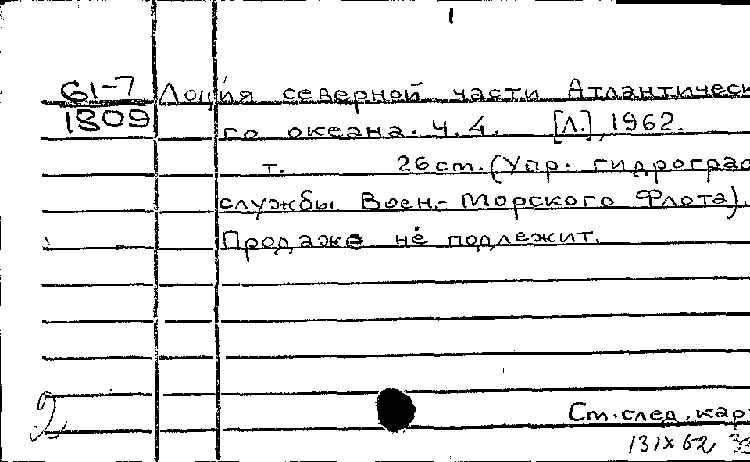 1
61-7 Лоция северной части Атлантическ
1809 го океана. Ч.4. [Л.], 1962.
т. 26 см. (Упр. гидрограф
службы Воен.- Морского Флота).
Продаже не подлежит.
2
См. след. кар
131х62